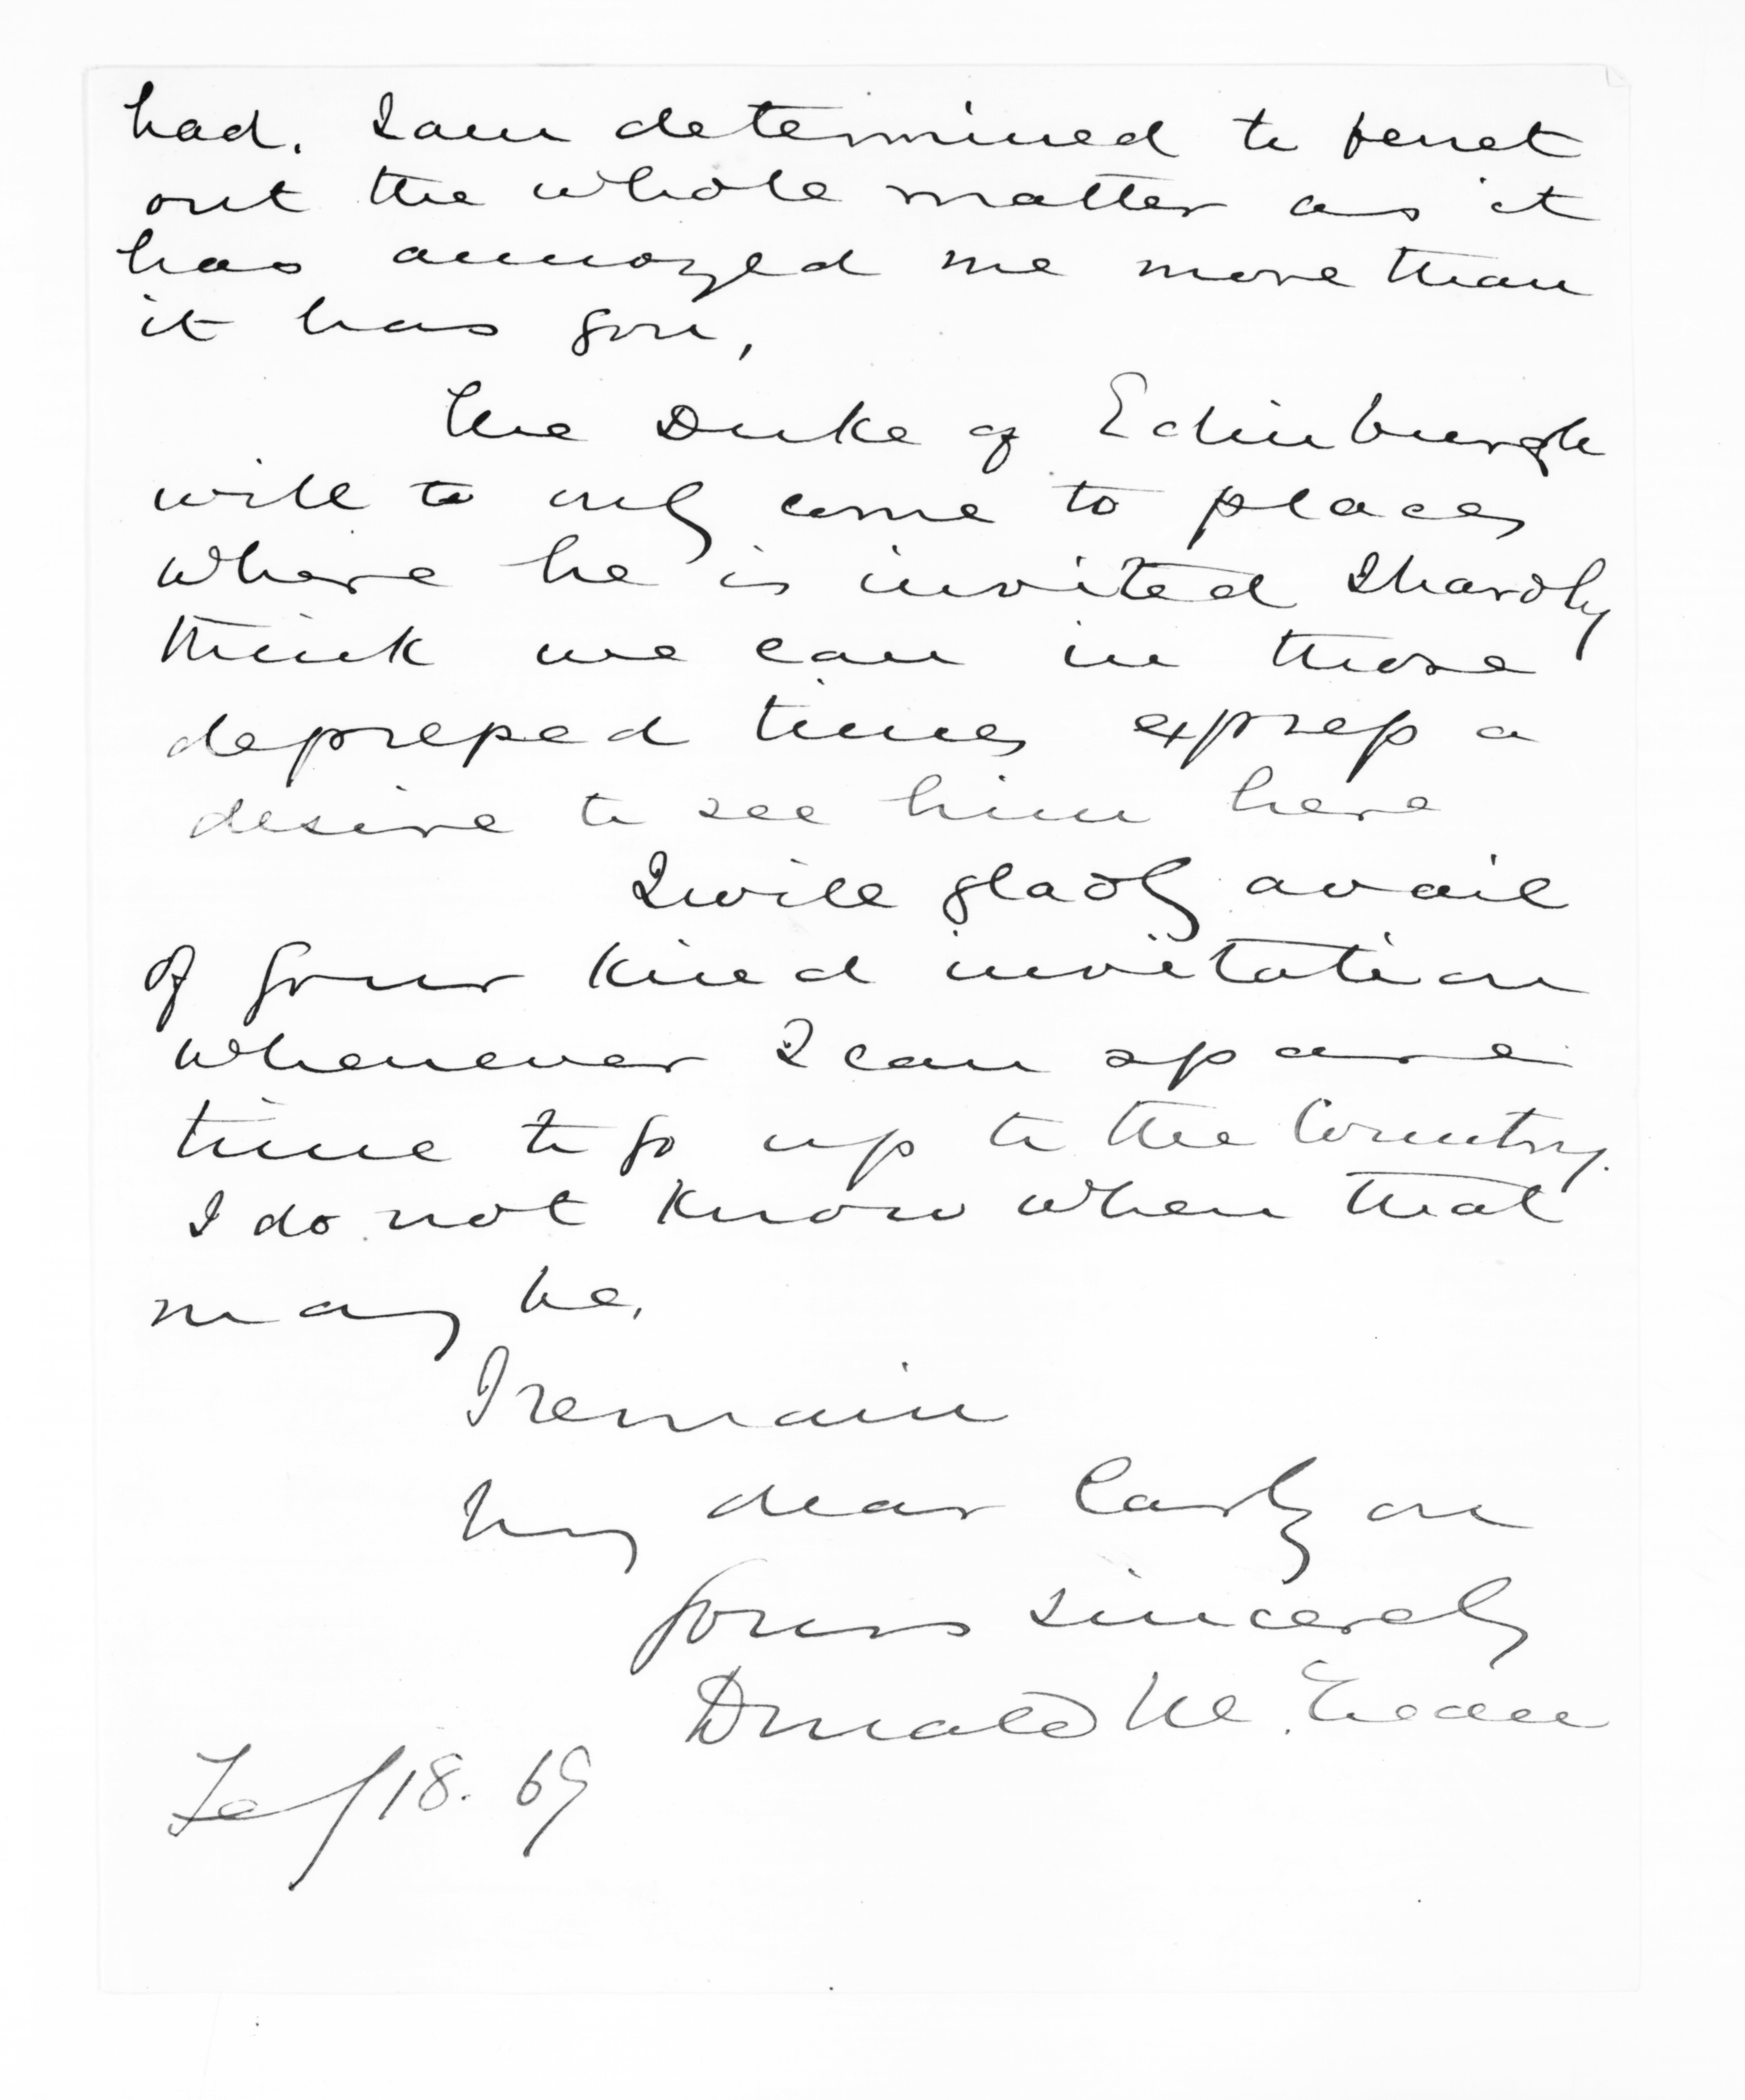 had. I am determined to ferret
out the whole matter as it
has annoyed me more than
it has you,
The Duke of Edinburgh
will to only come to places
where he is invited I hardly
think we can in those
depressed times express a
desire to see him here
I will gladly avail
of your kind invitation
whenever I can spare
time to go up to the Country.
I do not know when that
may be.
I remain
My dear Carlyon
yours sincerely
Donald McLean
Feb 18. 69